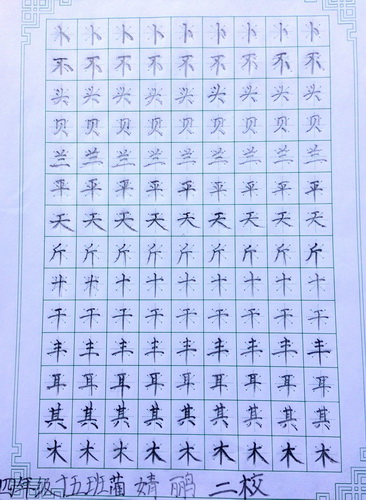 卜卜卜卜卜卜卜卜卜
不不不不不不不不不
头头头头头头头头头
贝贝贝贝贝贝贝贝贝
兰兰兰兰兰兰兰兰兰
平平平平平平平平平
天天天天天天天天天
斤斤斤斤斤斤斤斤斤
十十十十十十十
干干干干干干干干干
丰丰丰丰丰丰丰丰丰
耳耳耳耳耳耳耳耳耳
其其其其其其其其其
木木木木木木木木木
四年级十五班苗婧 二校